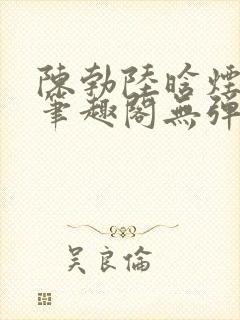 陳勃陸晗煙
筆趣閣無彈
吳良倫